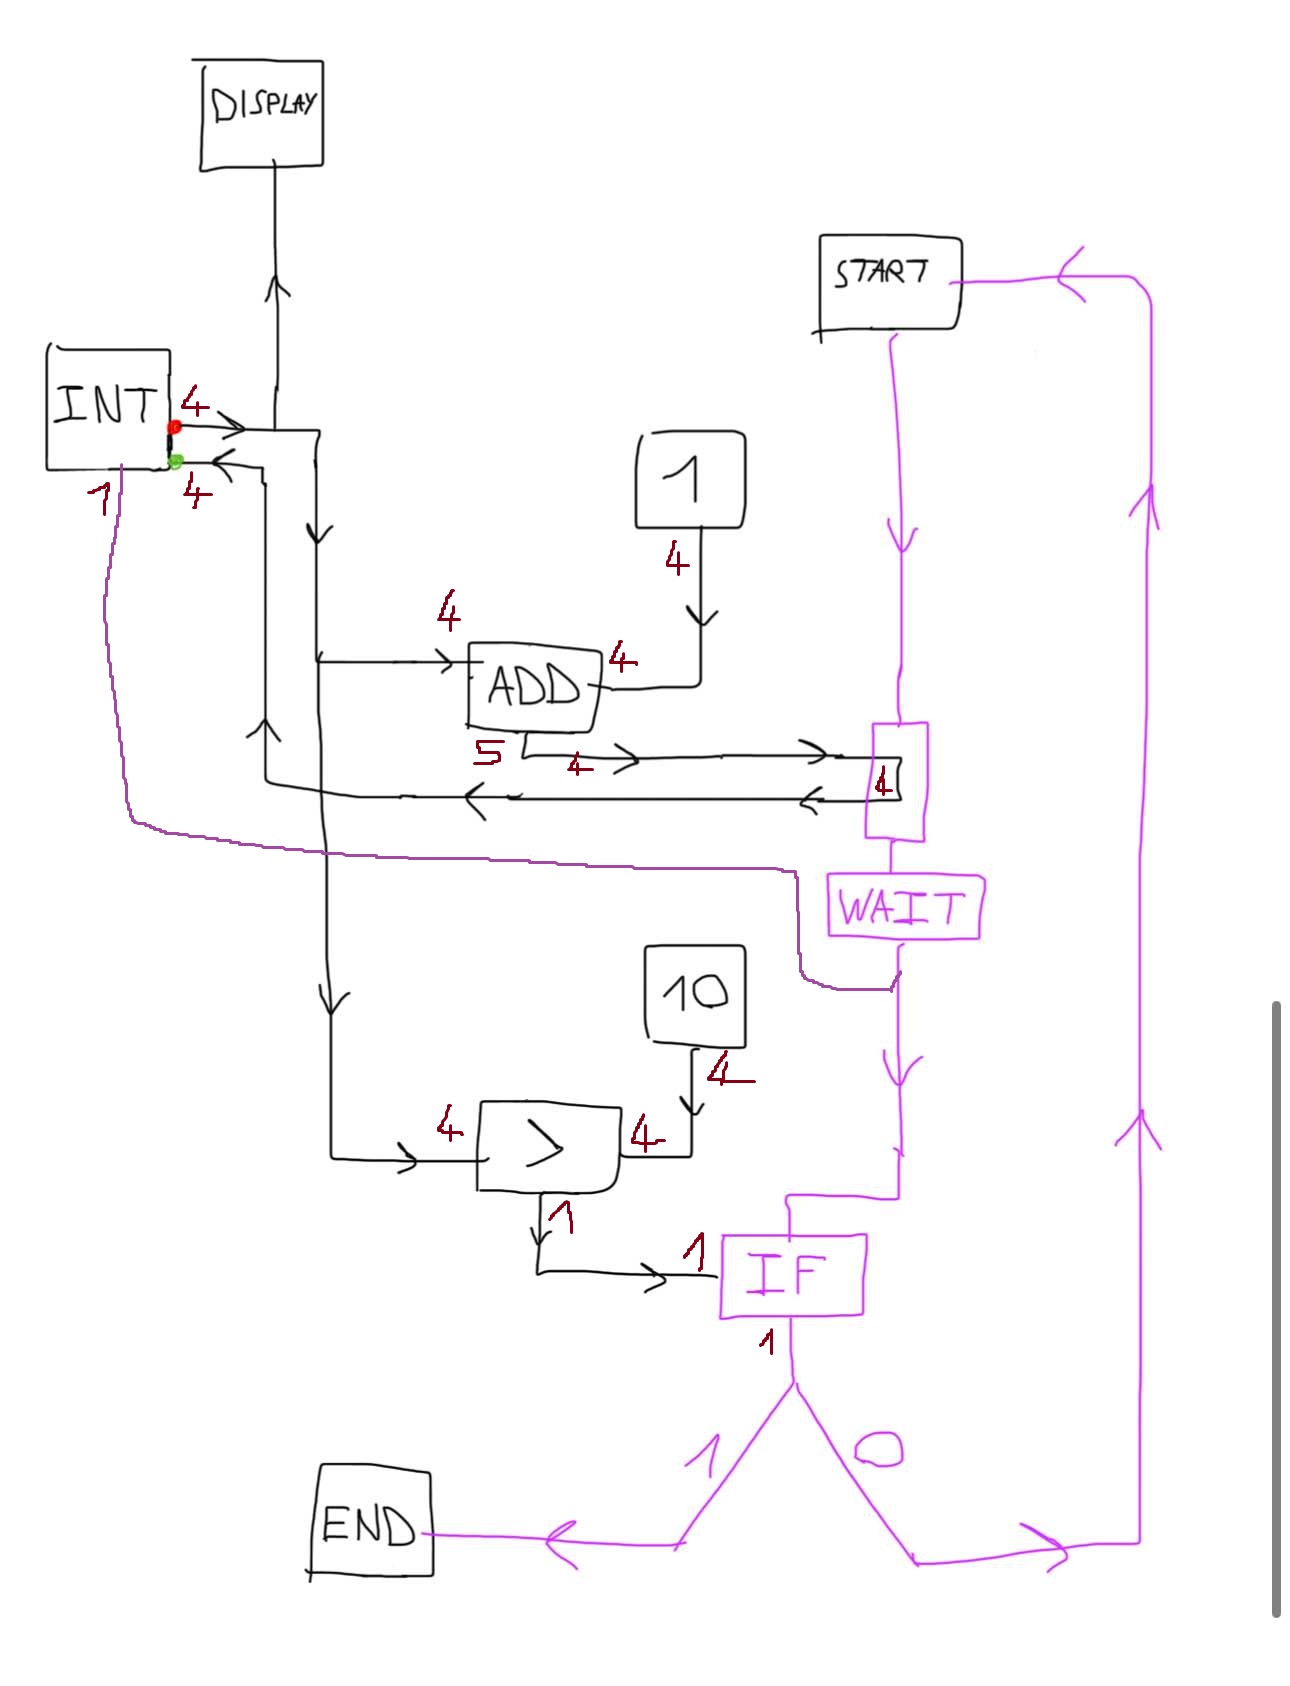 DISPLAY
START
INT
4
1
4
1
4
4
ADD
4
5
4
4
WAIT
10
4
4
>
4
1
1
IF
1
1
0
END